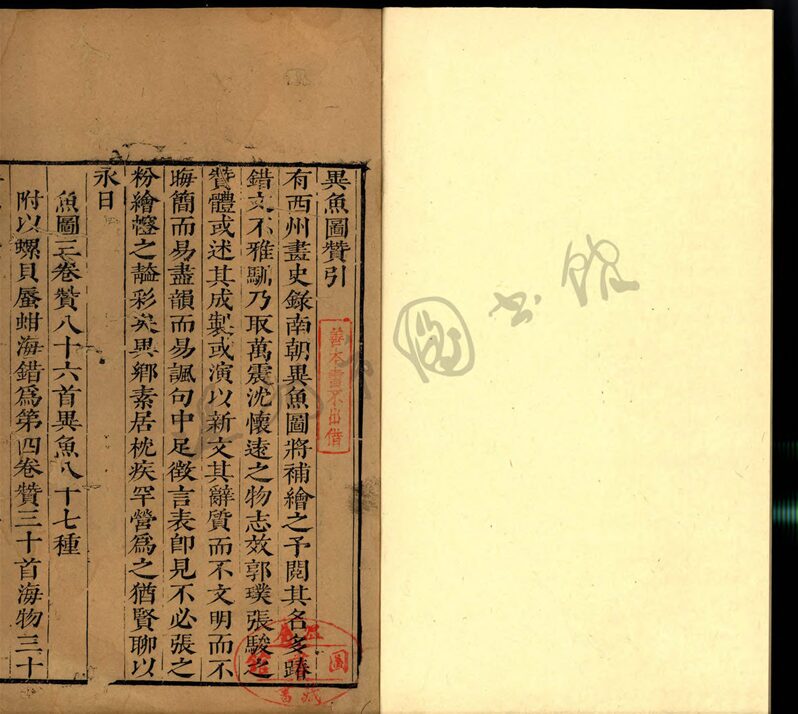 異魚圖贊引
有西州畫史錄南朝異魚圖將補繪之予閱其名多踳
錯文不雅馴乃取萬震沈懷遠之物志效郭璞張駿之
贊體或述其成製或演以新文其辭質而不文明而不
晦簡而易盡韻而易諷句中足徵言表即見不必張之
粉繪蘁之艷彩矣異鄉素居枕疾罕營為之猶賢聊以
永日
魚圖三卷贊八十六首異魚八十七種
附以螺貝蜃蚶海錯為第四卷贊三十首海物三十
善本書不出借
圖
書館